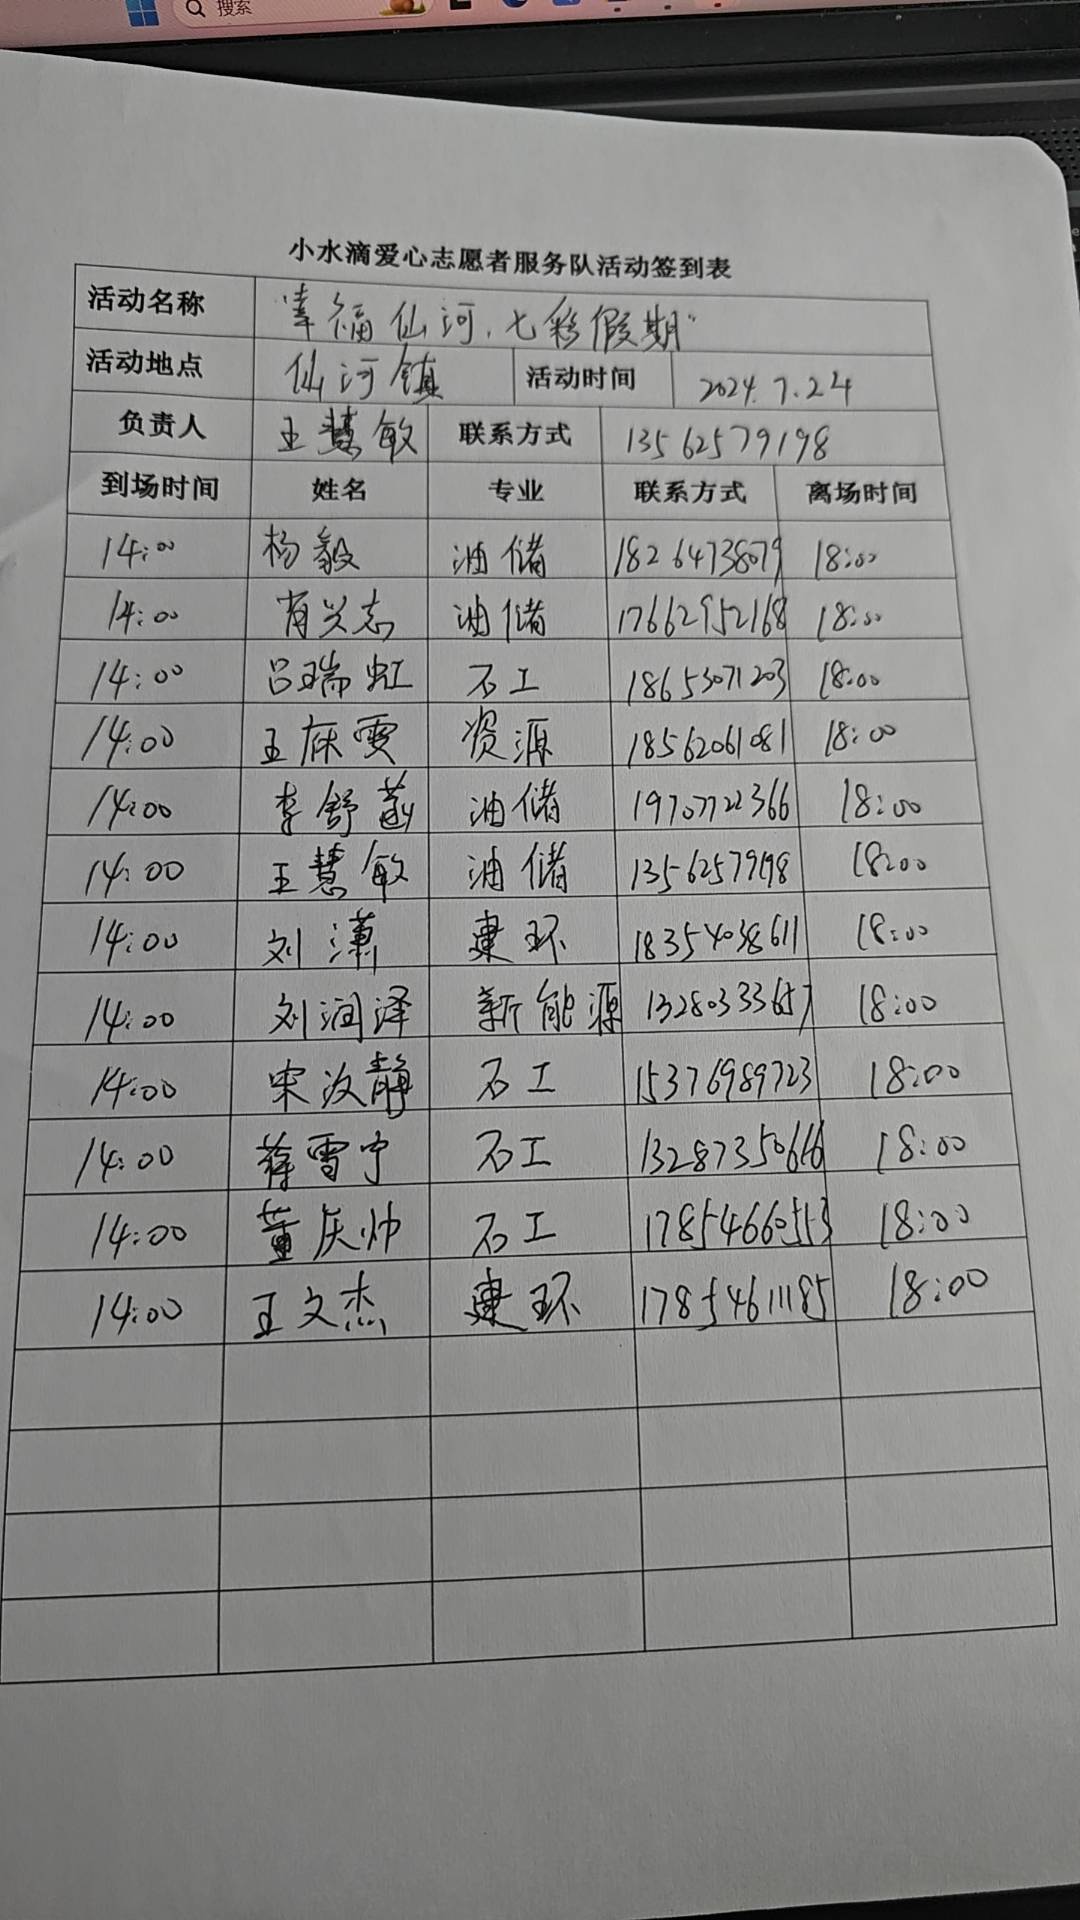 搜索
小水滴爱心志愿者服务队活动签到表
活动名称 “幸福仙河,七彩假期”
活动地点 仙河镇 活动时间 2024.7.24
负责人 王慧敏 联系方式 13562579198
到场时间 姓名 专业 联系方式 离场时间
14:00 杨毅 油储 18264738079 18:00
14:00 肖兴志 油储 17662952168 18:00
14:00 吕瑞虹 石工 18653071203 18:00
14:00 王庥雯 资源 18562061081 18:00
14:00 李舒菡 油储 19707722366 18:00
14:00 王慧敏 油储 13562579198 18:00
14:00 刘潇 建环 18354038611 18:00
14:00 刘润泽 新能源 13280333657 18:00
14:00 宋汝静 石工 15376989723 18:00
14:00 蒋雪宁 石工 13287350616 18:00
14:00 董庆帅 石工 17854660553 18:00
14:00 王文杰 建环 17854611185 18:00